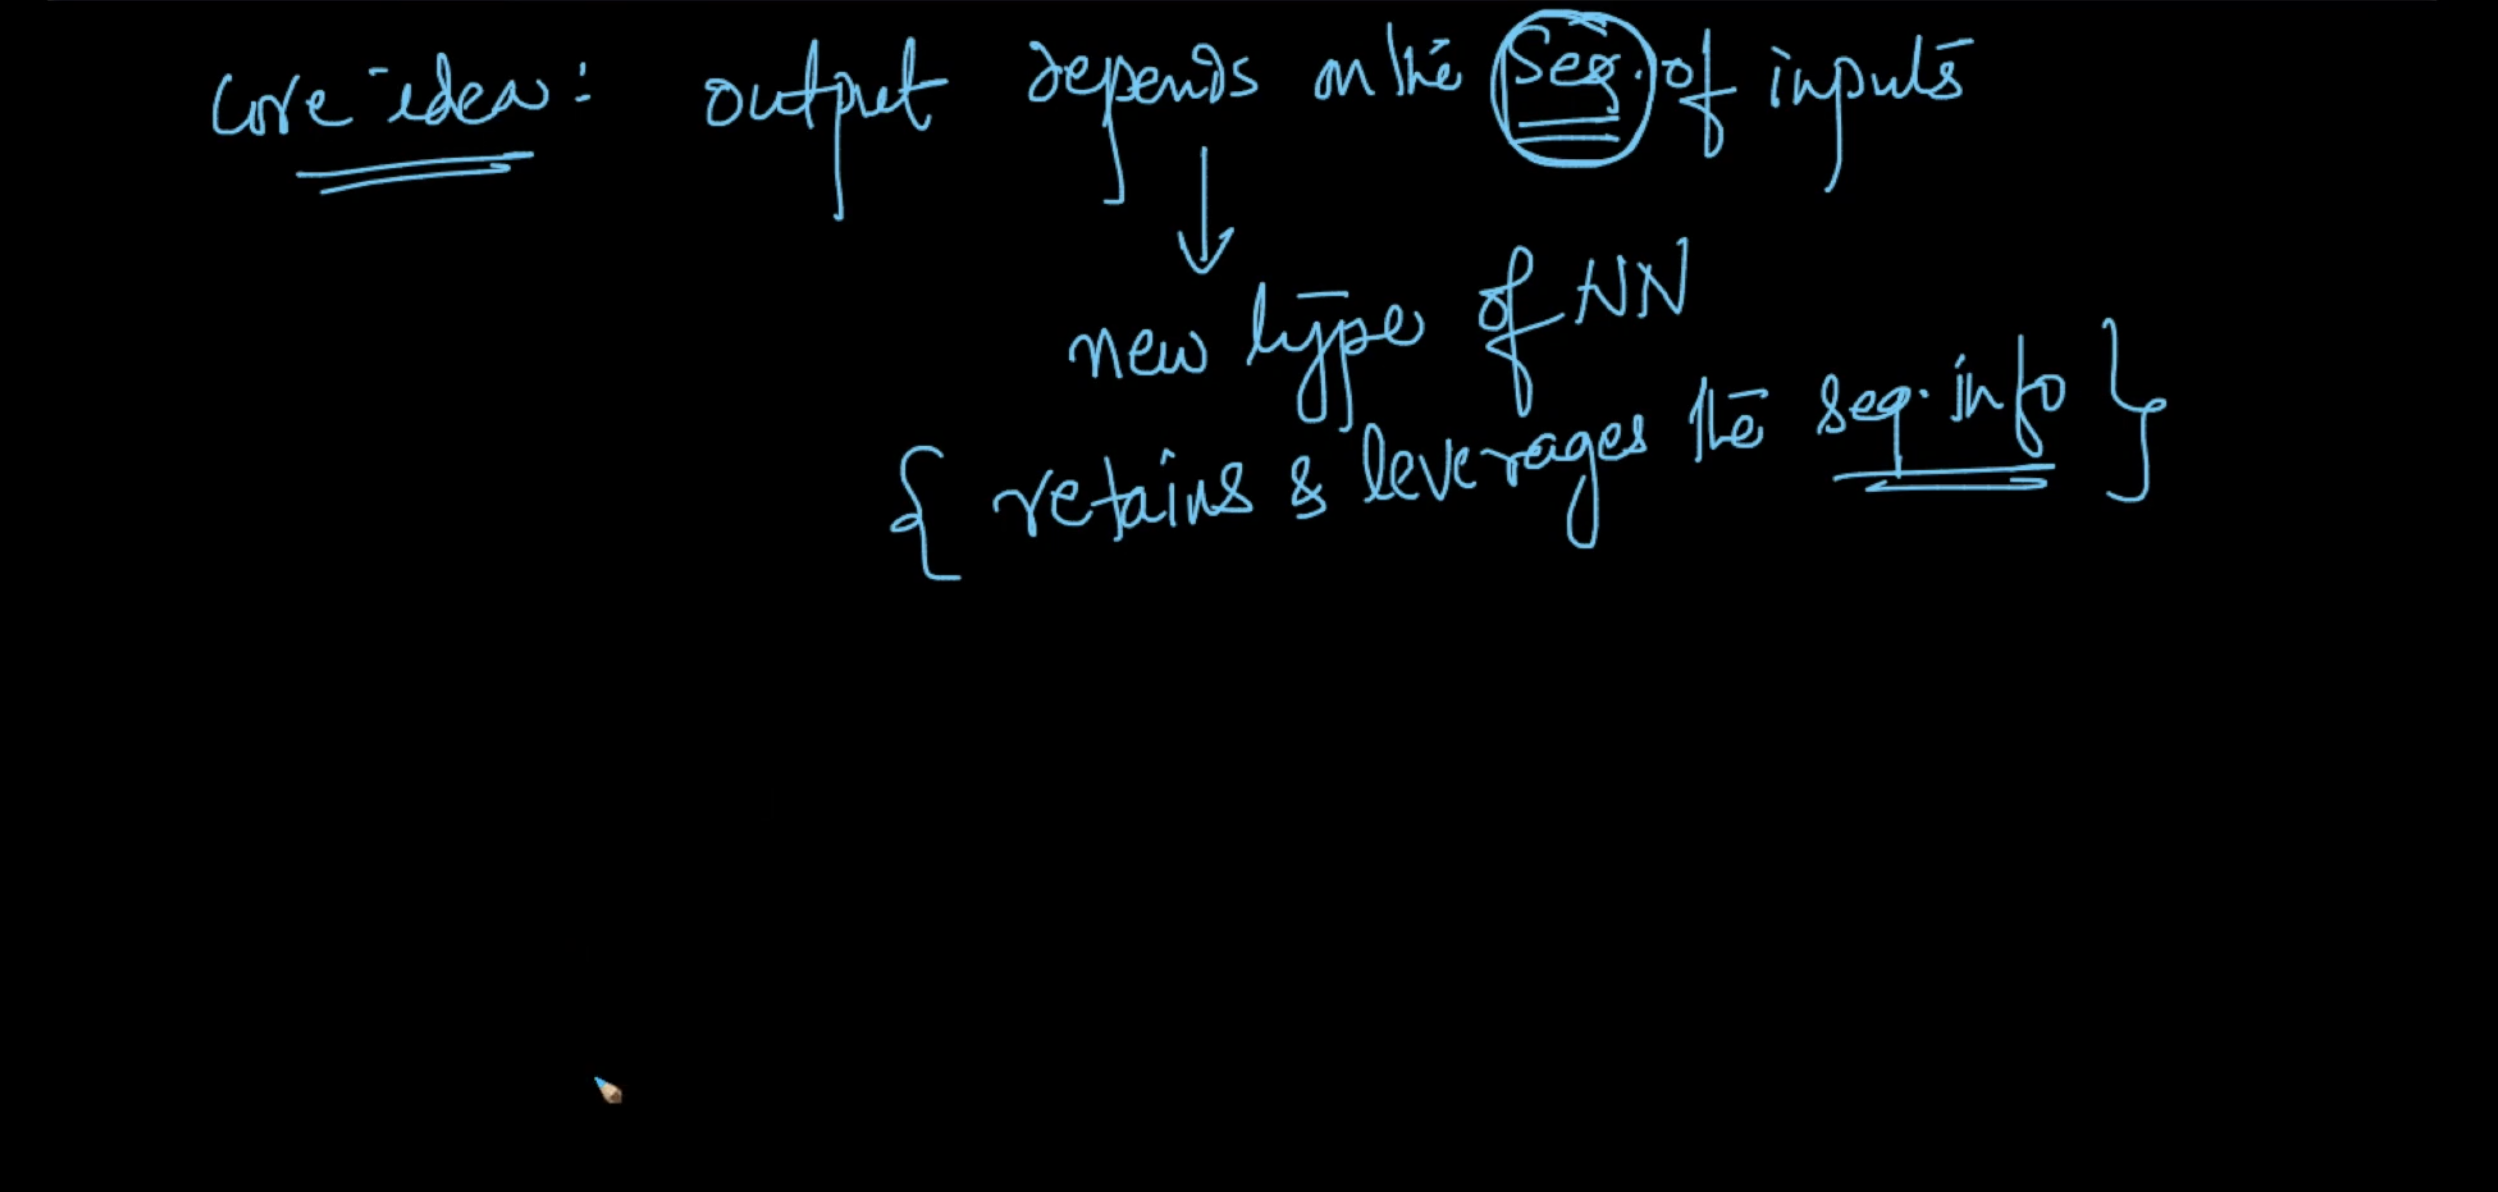 core-idea: output depends on the Seq. of inputs
new type of NN
{ retains & leverages the seq. info }